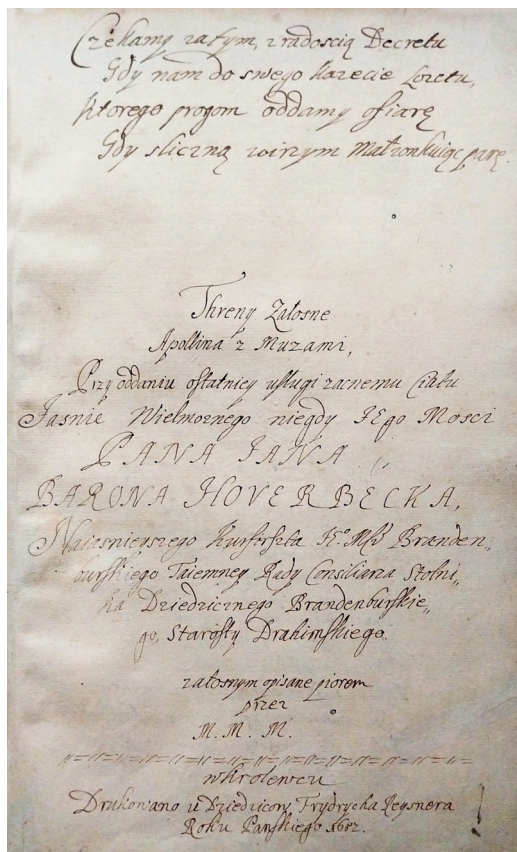 Czekamy zatym, z radoscią Decretu
Gdy nam do swego każecie Loretu,
ktorego progom oddamy ofiarę
Gdy sliczną uirzym Małzonkuiąc parę.
Threny Załosne
Apollina z Muzami,
Przy oddaniu ostatniey usługi zacnemu Ciału
Jasnie Wielmoznego niegdy JEgo Mosci
PANA JANA
BARONA HOVERBECKA,
Naiasnieyszego Kurfirszta Branden„
burskiego Taiemney Rady Consiliarza Stolni„
ka Dziedzicznego Brandenburskie„
go, Starosty Drahimskiego.
załosnym opisane piorem
przez
M. M. M.
w Krolewcu
Drukowano u Dziedzicow Frydrycha Reysnera
Roku Panskiego 1682.